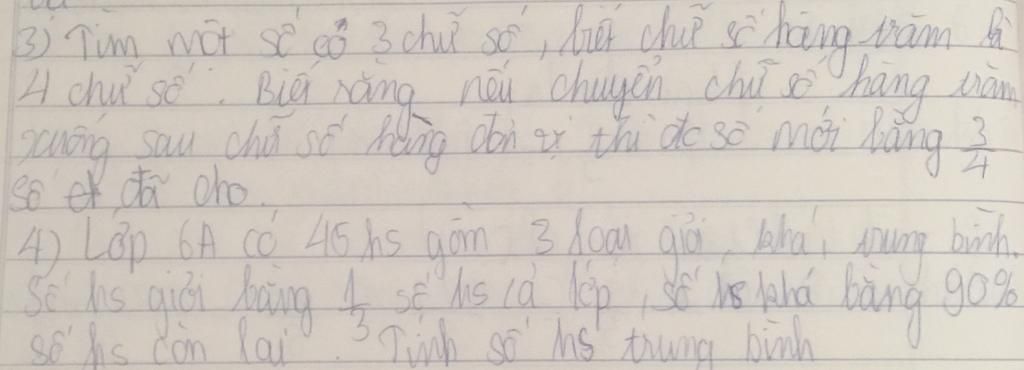 3) Tìm một số có 3 chữ số, biết chữ số hàng trăm là
4 chữ số. Biết rằng nếu chuyển chữ số hàng trăm
xuống sau chữ số hàng đơn vị thì đc số mới bằng 3/4
số đã cho.
4) Lớp 6A có 45 hs gồm 3 loại giỏi, khá, trung bình.
Số hs giỏi bằng 1/3 số hs cả lớp, số hs khá bằng 90%
số hs còn lại. Tính số hs trung bình